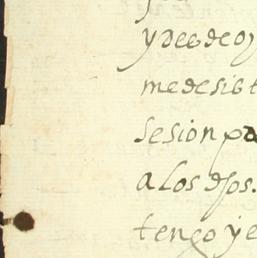 y desde oy
me desist
sesion pa
a los dhos.
tengo y e